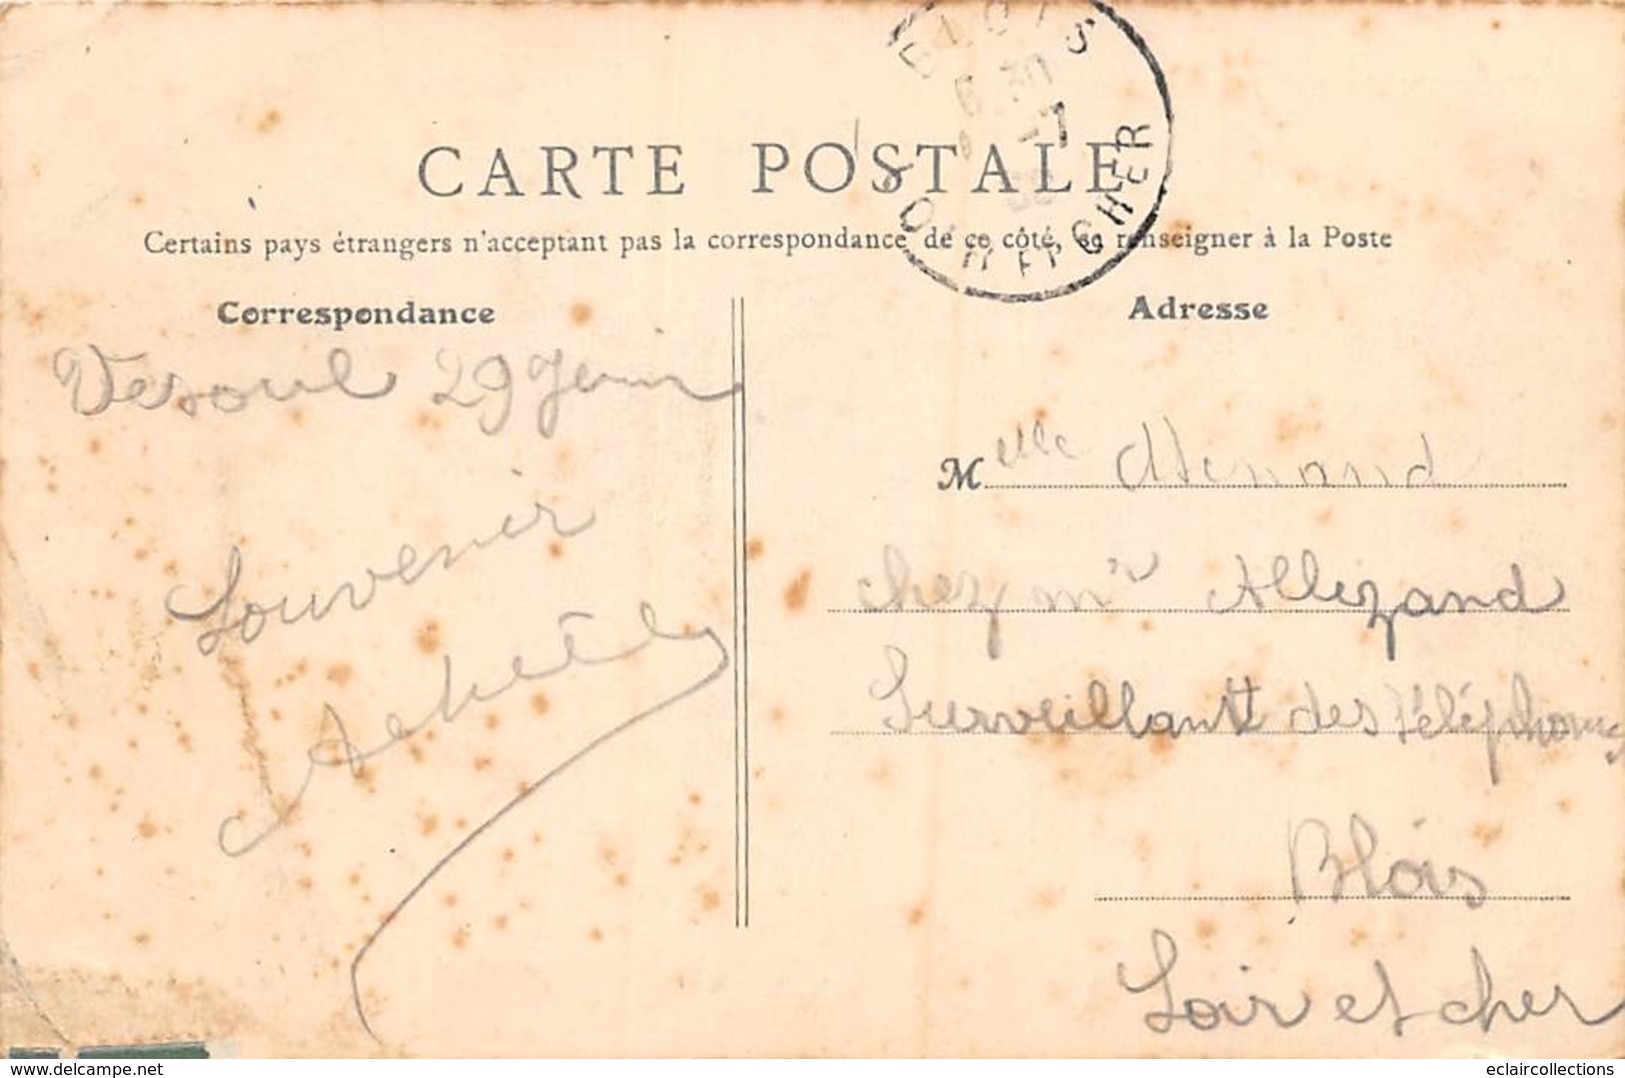 BLOIS
30
-7
LOIR-ET-CHER
CARTE POSTALE
Certains pays étrangers n'acceptant pas la correspondance de ce côté, se renseigner à la Poste
Correspondance
Adresse
Vesoul 29 Juin
Souvenir
Melle Menand
chez mr Allezand
Surveillant des téléphones
Blois
Loir et cher
www.delcampe.net
eclaircollections